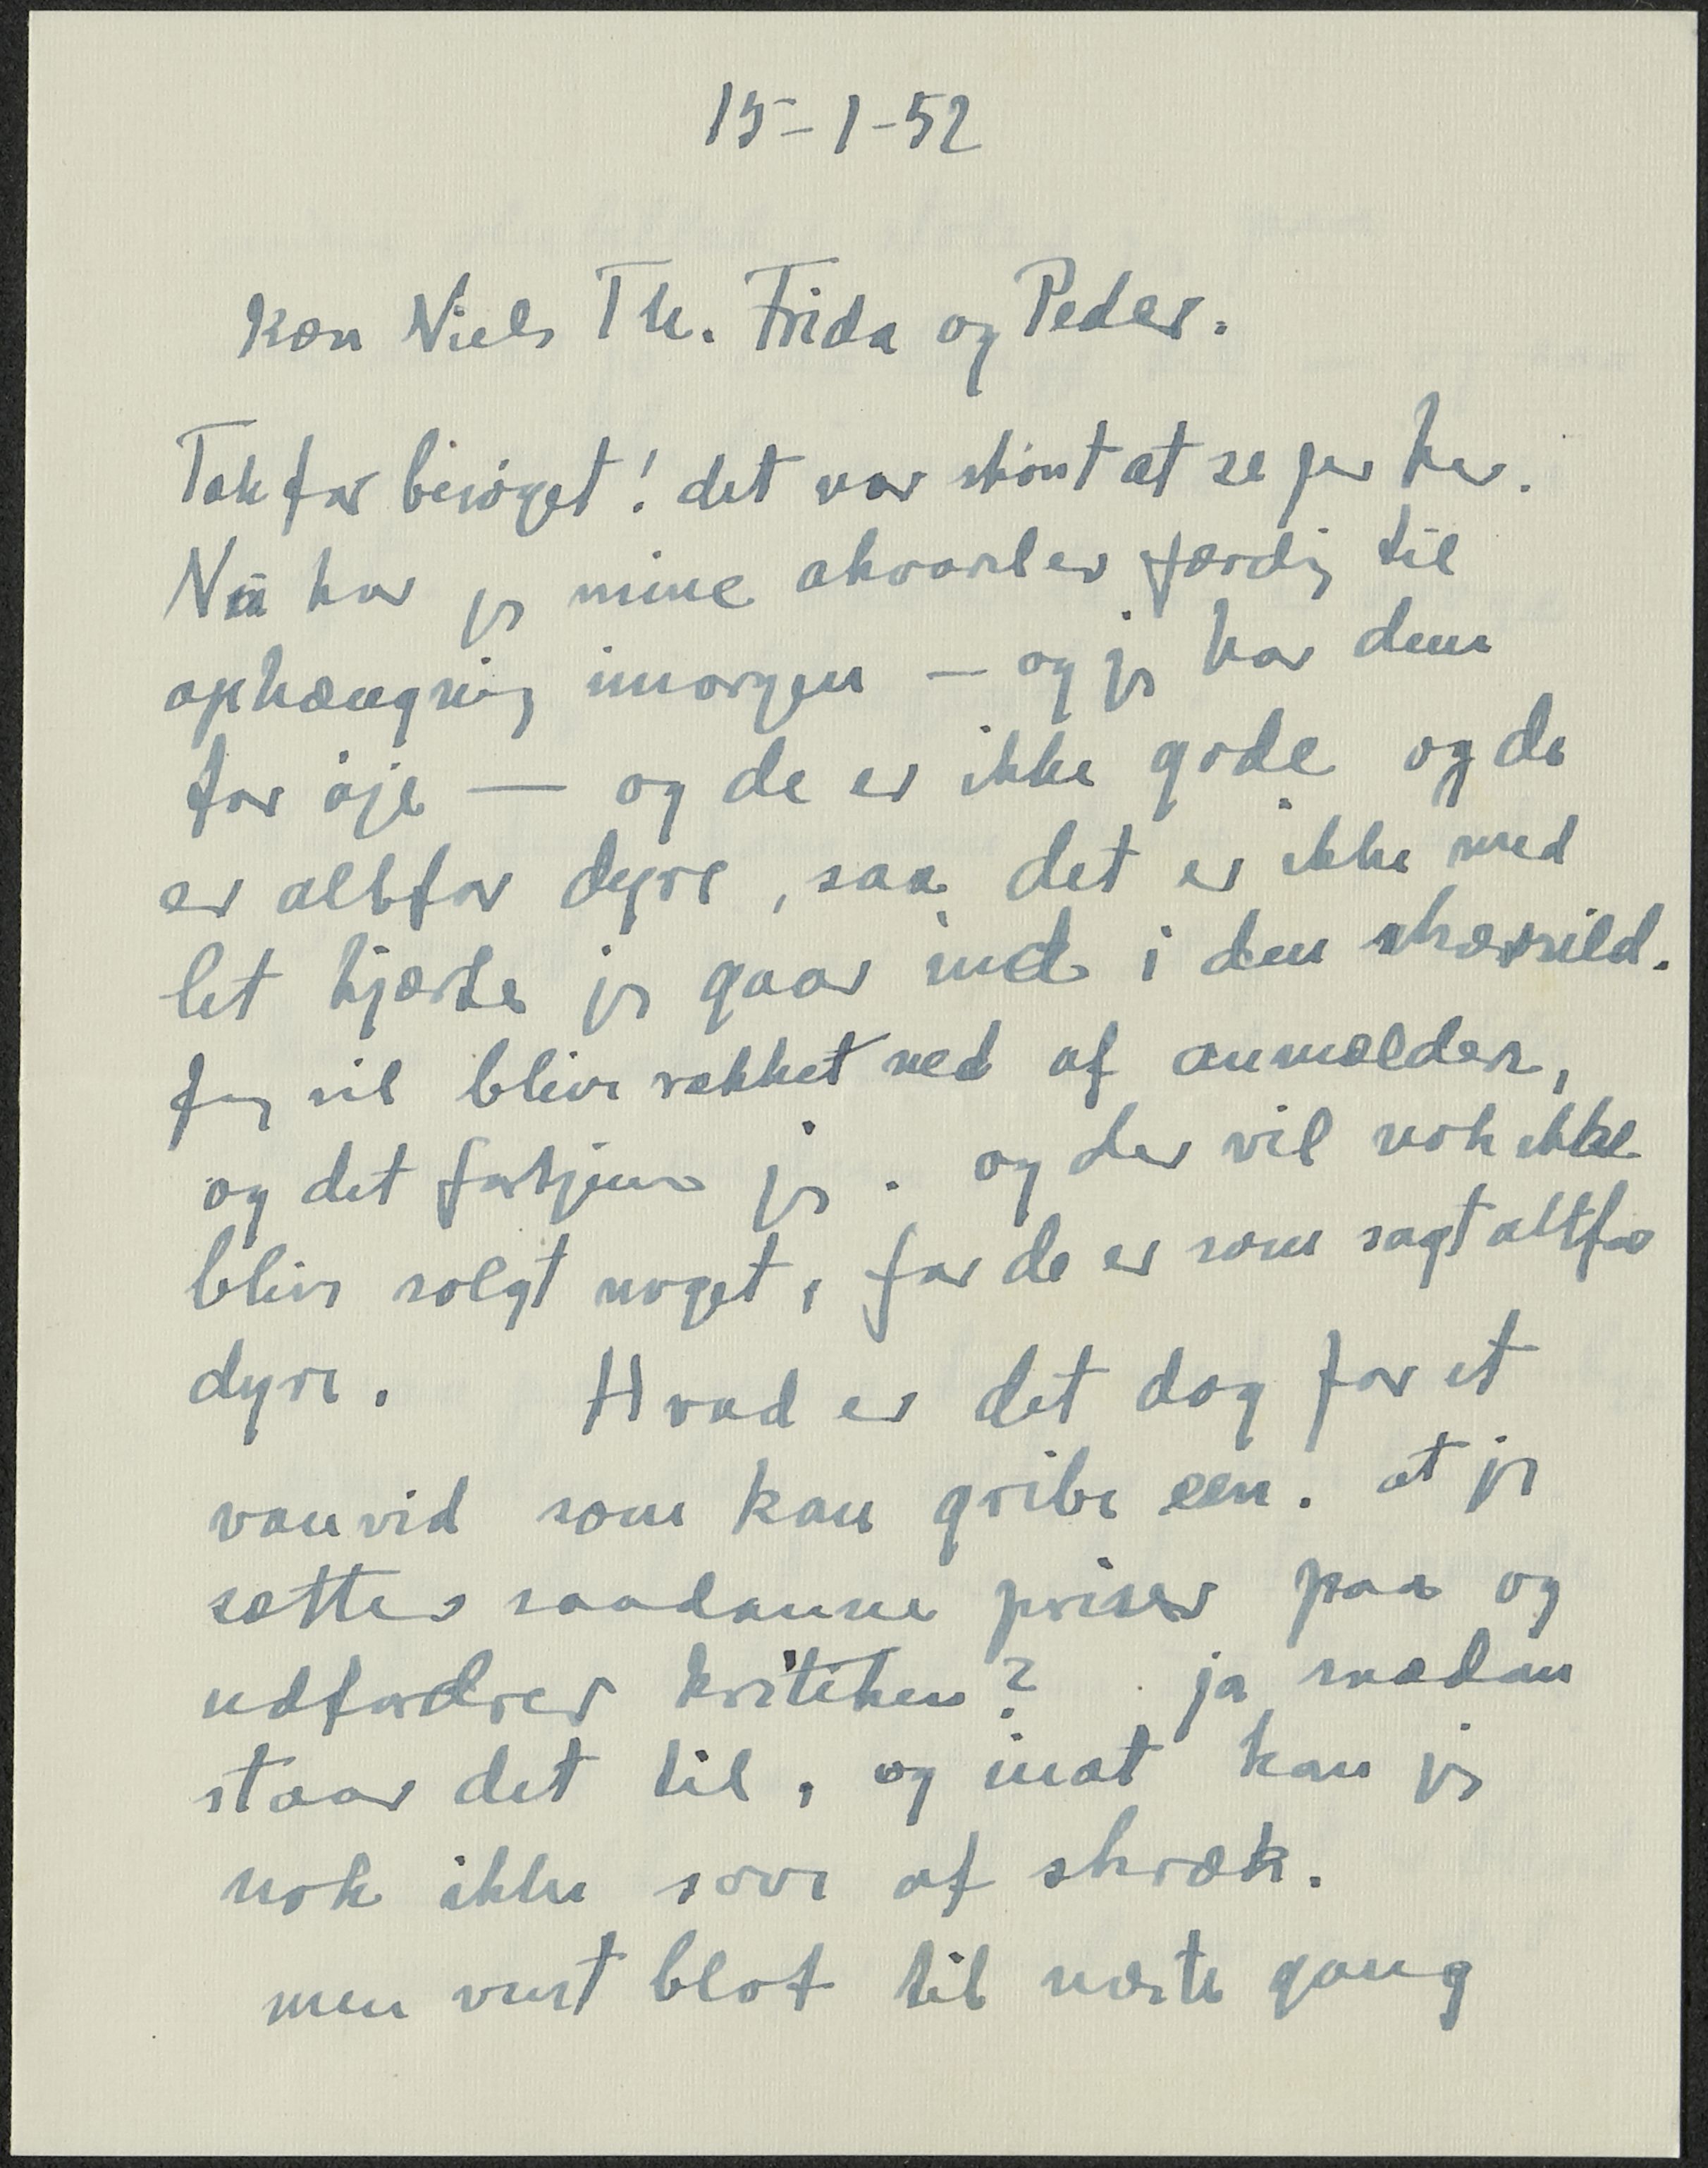 15-1-52
Kære Niels Th. Frida og Peder.
Tak for besøget! det var skønt at se jer her.
Nu har jeg mine akvareler færdig til
ophængning imorgen — og jeg har dem
for øje — og de er ikke gode og de
er altfor dyre, saa det er ikke med
let hjærte jeg gaar ind i den skærsild.
Jeg vil blive rakket ned af anmælder,
og det fortjener jeg. og der vil nok ikke
blive solgt noget, for de er som sagt altfor
dyre. Hvad er det dog for et
vanvid som kan gribe een. at jeg
sætter saadanne priser paa og
udfordrer kritiken? ja saadan
staar det til, og inat kan jeg
nok ikke sove af skræk.
men vent blot til næste gang